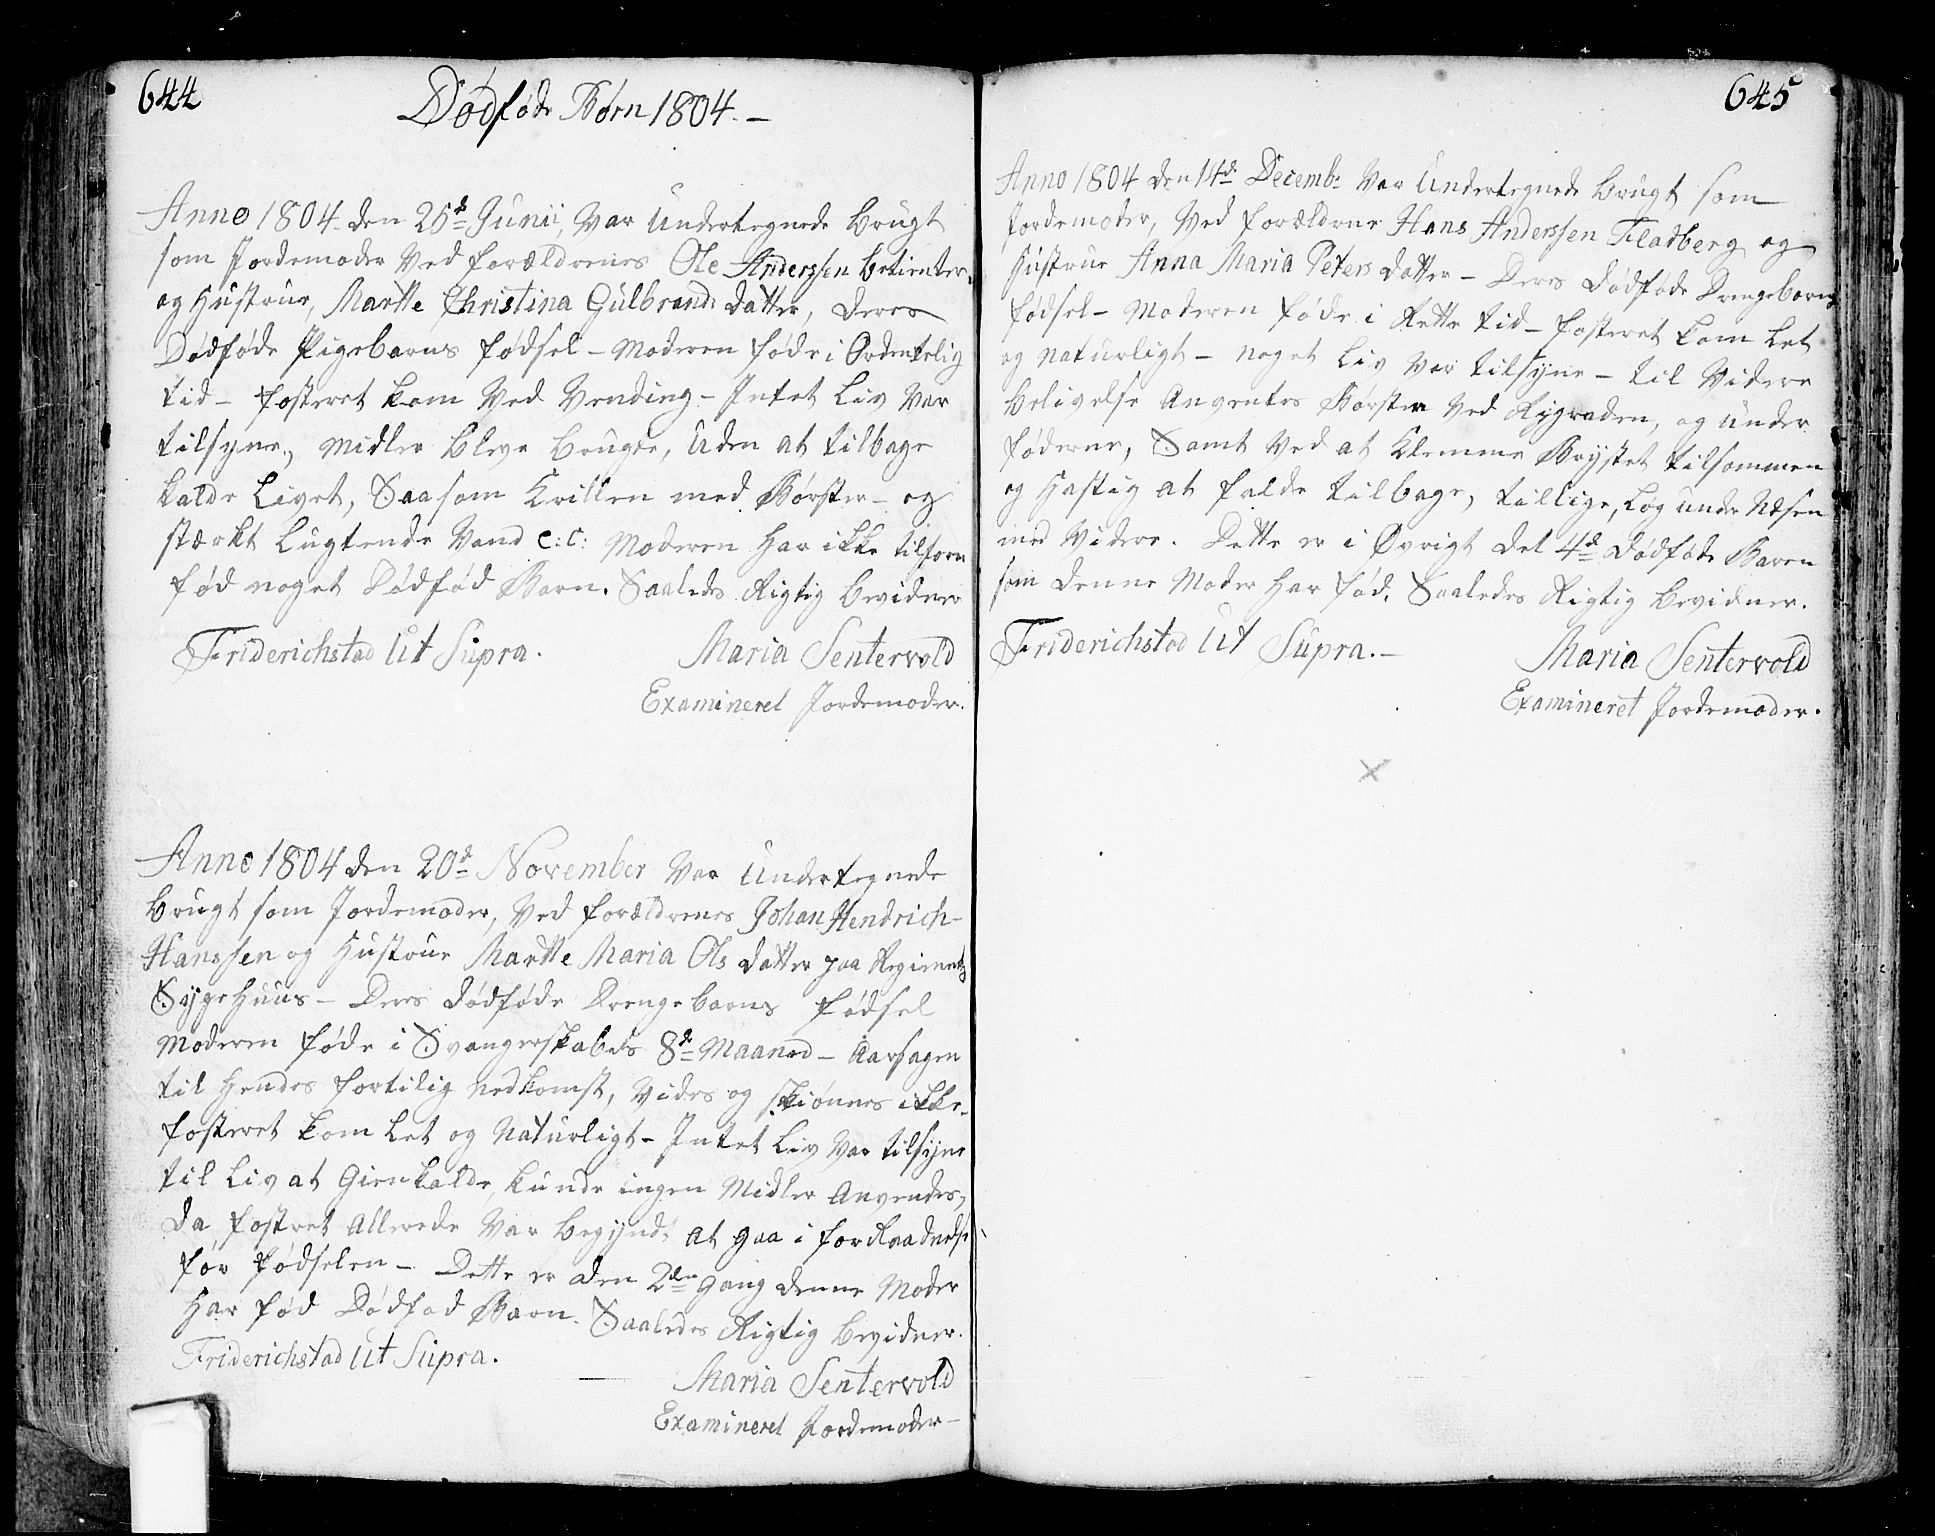 644
Dødføde Børn 1804. –
Anno 1804. den 25de Junii, Var Undertegnede brugt
som Jordemoder Ved forældrenes Ole Anderssen betienter,
og Hustrue, Marthe Christina Gulbrands datter, deres
Dødføde Pigebarns fødsel – Moderen føde i Ordentelig
tid – fosteret kom Ved Vending – Intet Liv Var
tilsyne, midler bleve brugte, uden at tilbage
kalde Livet, Saasom Krillen med Børster – og
stærkt lugtende Vand e: c: Moderen har ikke tilforn
fød noget Dødfød Barn. Saaledes Rigtig bevidner
Friderichstad Ut Supra.
Maria Sentervold
Examineret Jordemoder.
Anno 1804 den 20de November Var Undertegnede
brugt som Jordemoder, Ved forældrenes Johan Hendrich
Hanssen og Hustrue Marthe Maria Ols datter paa Regiments
Sygehuus – Deres dødføde Drengebarns fødsel
Moderen føde i Svangerskabets 8de Maaned – Aarsagen
til hendes fortilig nedkomst, Vides og skiønnes ikke.
fosteret kom let og Naturligt – Intet Liv Var tilsyne
til Liv at Gienkalde, kunde ingen Midler Anvendes,
da fostret Allerede Var begyndt at gaa i forRaadnelse
før fødselen – Dette er den 2den gang denne Moder
har fød Dødfød Barn. Saaledes Rigtig bevidner.
Friderichstad Ut Supra.
Maria Sentervold
Examineret Jordemoder –
645
Anno 1804 den 14de Decembr Var Undertegnede brugt som
Jordemoder, Ved forældrene Hans Anderssen Fladberg og
Hustrue Anna Maria Peters datter – Deres dødføde Drengebarns
fødsel – Moderen føde i Rette tid – fosteret kom let
og naturligt – noget Liv Var tilsyne – til Videre
belivelse Anventes Børsten Ved Rygraden, og under
føderne, Samt Ved at Klemme Brystet tilsammen
og hastig at falde tilbage, tillige, løg under Næsen
med Videre. Dette er i Øvrigt det 4de dødføde Baren
som denne Moder har fød. Saaledes Rigtig bevidner.
Friderichstad Ut Supra. –
Maria Sentervold
Examineret Jordemoder.